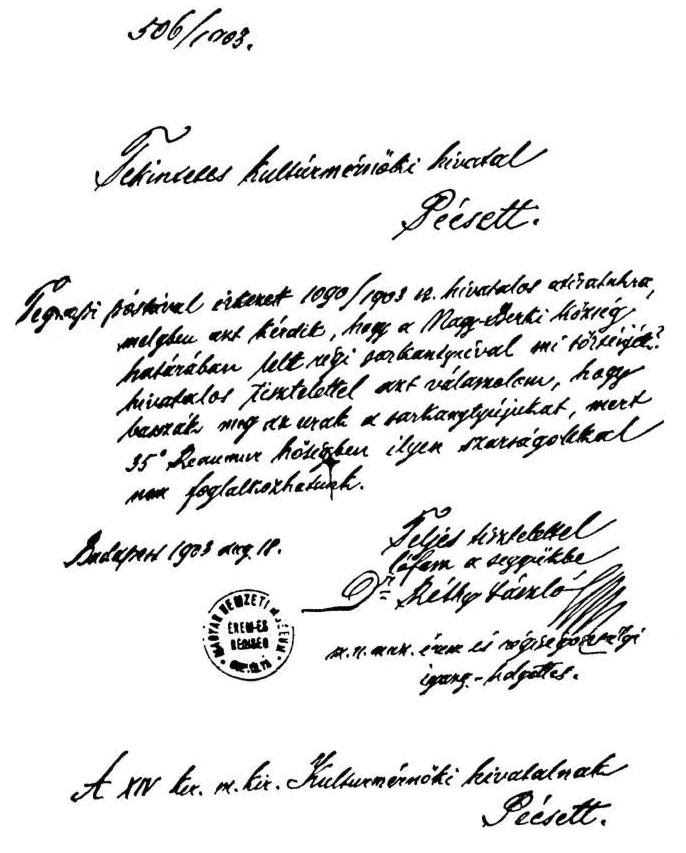 506/1903.
Tekintetes kultúrmérnöki hivatal
Pécsett.
Tegnapi póstával érkezet 1090/1903 sz. hivatalos átiratukra,
melyben azt kérdik, hogy a Nagy-Berki község
határában lelt régi sarkantyúval mi történjék?
hivatalos tisztelettel azt válaszolom, hogy
basszák meg az urak a sarkanytyújukat, mert
35° Reaumur hőségben ilyen szarságokkal
nem foglalkozhatunk.
Budapest 1903 aug. 18.
Teljes tisztelettel
lófasz a seggükbe
Dr Réthy László
m. n. muz. érem és régiségosztályi
igazg.-helyettes.
MAGYAR NEMZETI MUZEUM
ÉREM-ÉS
RÉGISÉG
A XIV ker. m. kir. Kulturmérnöki hivatalnak
Pécsett.